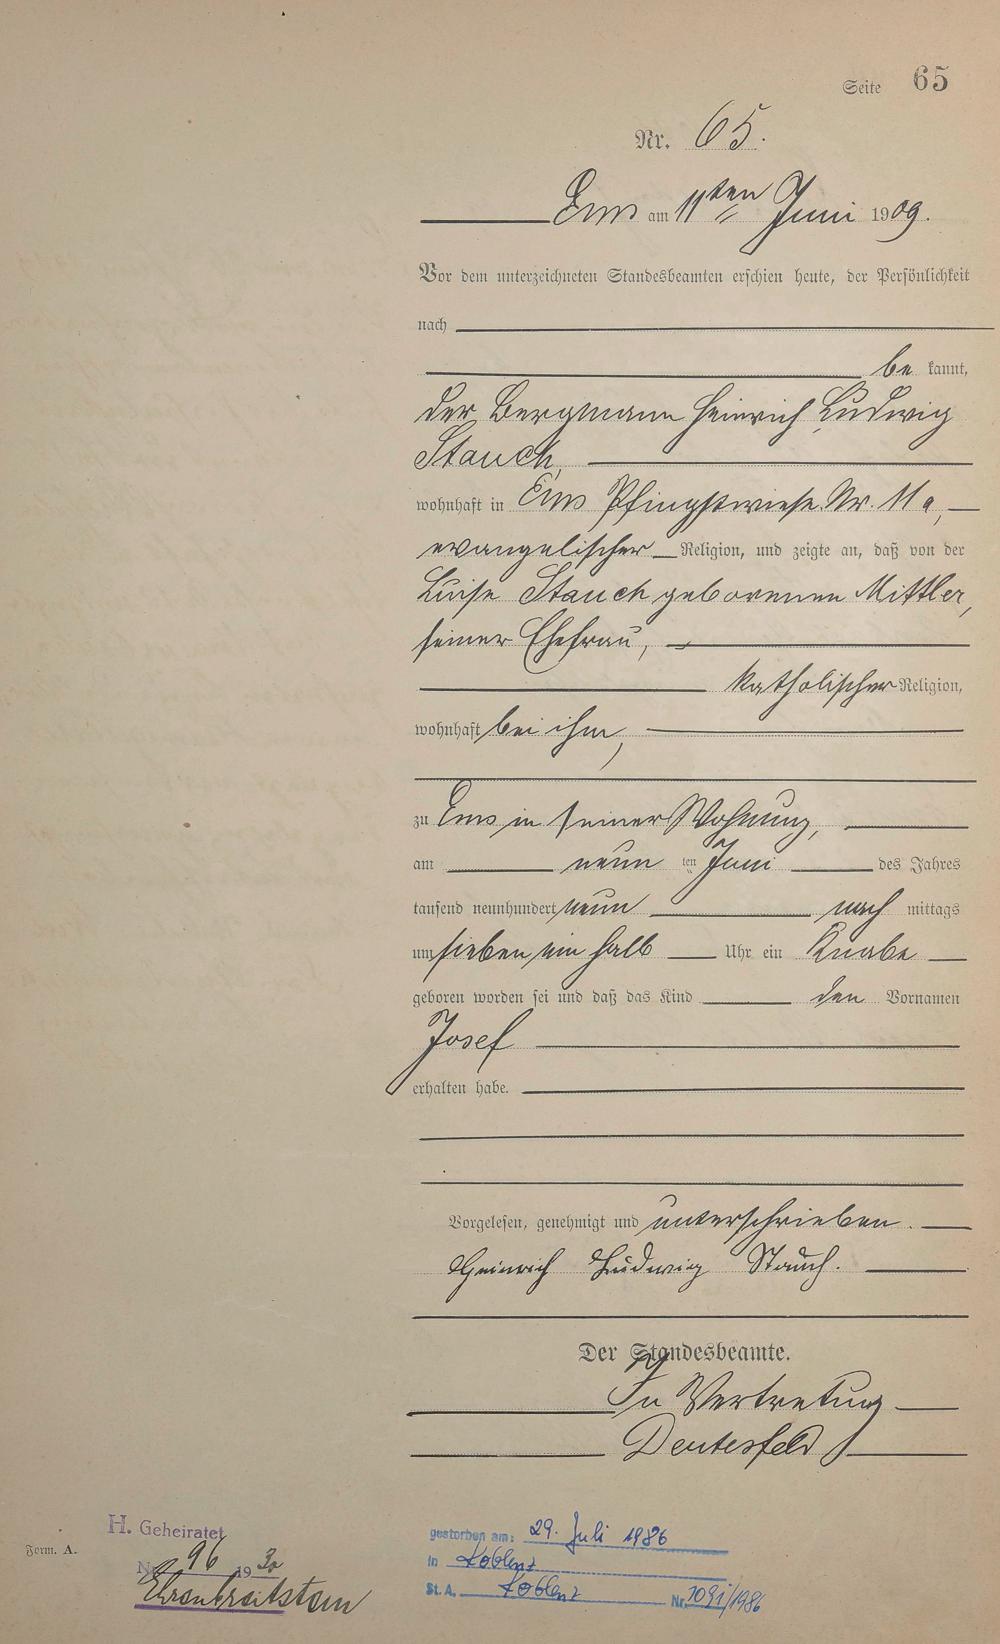 Seite 65
Nr. 65.
Ems am 11ten Juni 1909.
Vor dem unterzeichneten Standesbeamten erschien heute, der Persönlichkeit
nach
be kannt,
der Bergmann Heinrich Ludwig
Stauch,
wohnhaft in Ems Pfingstwiese Nr. 11a,
evangelischer Religion, und zeigte an, daß von der
Luise Stauch geborenen Mittler,
seiner Ehefrau,
katholischer Religion,
wohnhaft bei ihm,
zu Ems in seiner Wohnung,
am neun ten Juni des Jahres
tausend neunhundert neun nach mittags
um sieben ein halb Uhr ein Knabe
geboren worden sei und daß das Kind den Vornamen
Josef
erhalten habe.
Vorgelesen, genehmigt und unterschrieben.
Heinrich Ludwig Stauch.
Der Standesbeamte.
In Vertretung
H. Geheiratet
Nr. 96 1930
Ehrenbreitstein
Form. A.
gestorben am: 29. Juli 1986
in Koblenz
St. A. Koblenz Nr. 1091/1986